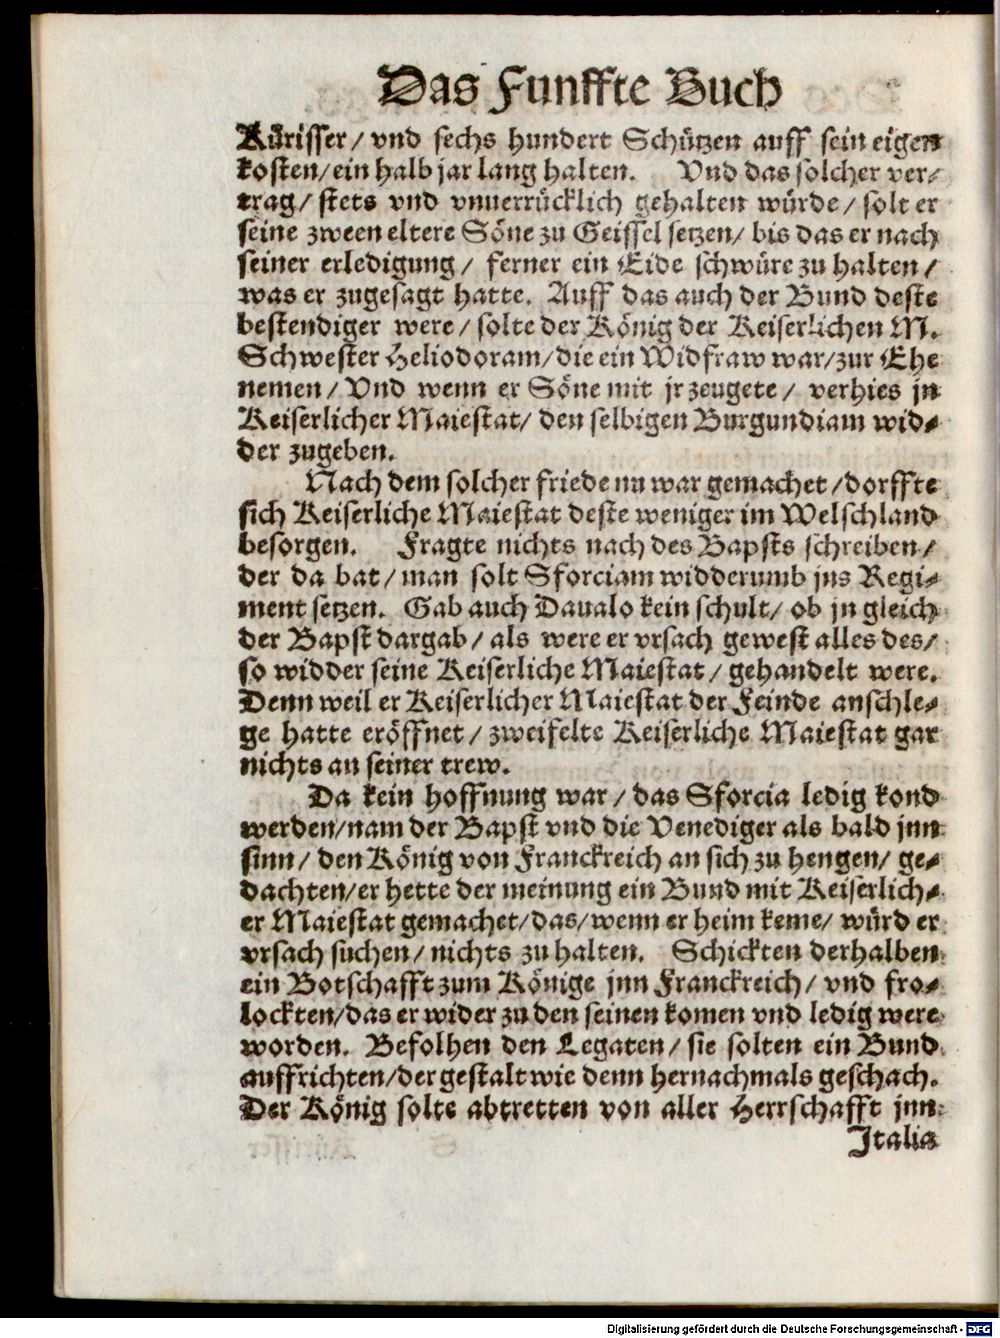 Das Funffte Buch
Kürisser / vnd sechs hundert Schützen auff sein eigen
kosten/ ein halb jar lang halten. Vnd das solcher ver-
trag/ stets vnd vnuerrücklich gehalten würde/ solt er
seine zween eltere Söne zu Geissel setzen/ bis das er nach
seiner erledigung / ferner ein Eide schwüre zu halten /
was er zugesagt hatte. Auff das auch der Bund deste
bestendiger were / solte der König der Keiserlichen M.
Schwester Heliodoram/ die ein Widfraw war/ zur Ehe
nemen / Vnd wenn er Söne mit jr zeugete / verhies jn
Keiserlicher Maiestat/ den selbigen Burgundiam wid-
der zugeben.
Nach dem solcher friede nu war gemachet / dorffte
sich Keiserliche Maiestat deste weniger im Welschland
besorgen. Fragte nichts nach des Bapsts schreiben /
der da bat / man solt Sforciam widderumb jns Regi-
ment setzen. Gab auch Daualo kein schult/ ob jn gleich
der Bapst dargab / als were er vrsach gewest alles des/
so widder seine Keiserliche Maiestat / gehandelt were.
Denn weil er Keiserlicher Maiestat der Feinde anschle-
ge hatte eröffnet / zweifelte Keiserliche Maiestat gar
nichts an seiner trew.
Da kein hoffnung war / das Sforcia ledig kond
werden/ nam der Bapst vnd die Venediger als bald jnn
sinn / den König von Franckreich an sich zu hengen/ ge-
dachten/ er hette der meinung ein Bund mit Keiserlich-
er Maiestat gemachet/ das/ wenn er heim keme/ würd er
vrsach suchen / nichts zu halten. Schickten derhalben
ein Botschafft zum Könige jnn Franckreich/ vnd fro-
lockten/ das er wider zu den seinen komen vnd ledig were
worden. Befolhen den Legaten / sie solten ein Bund
auffrichten/ der gestalt wie denn hernachmals geschach.
Der König solte abtretten von aller Herrschafft jnn
Jtalia
Digitalisierung gefördert durch die Deutsche Forschungsgemeinschaft - DFG